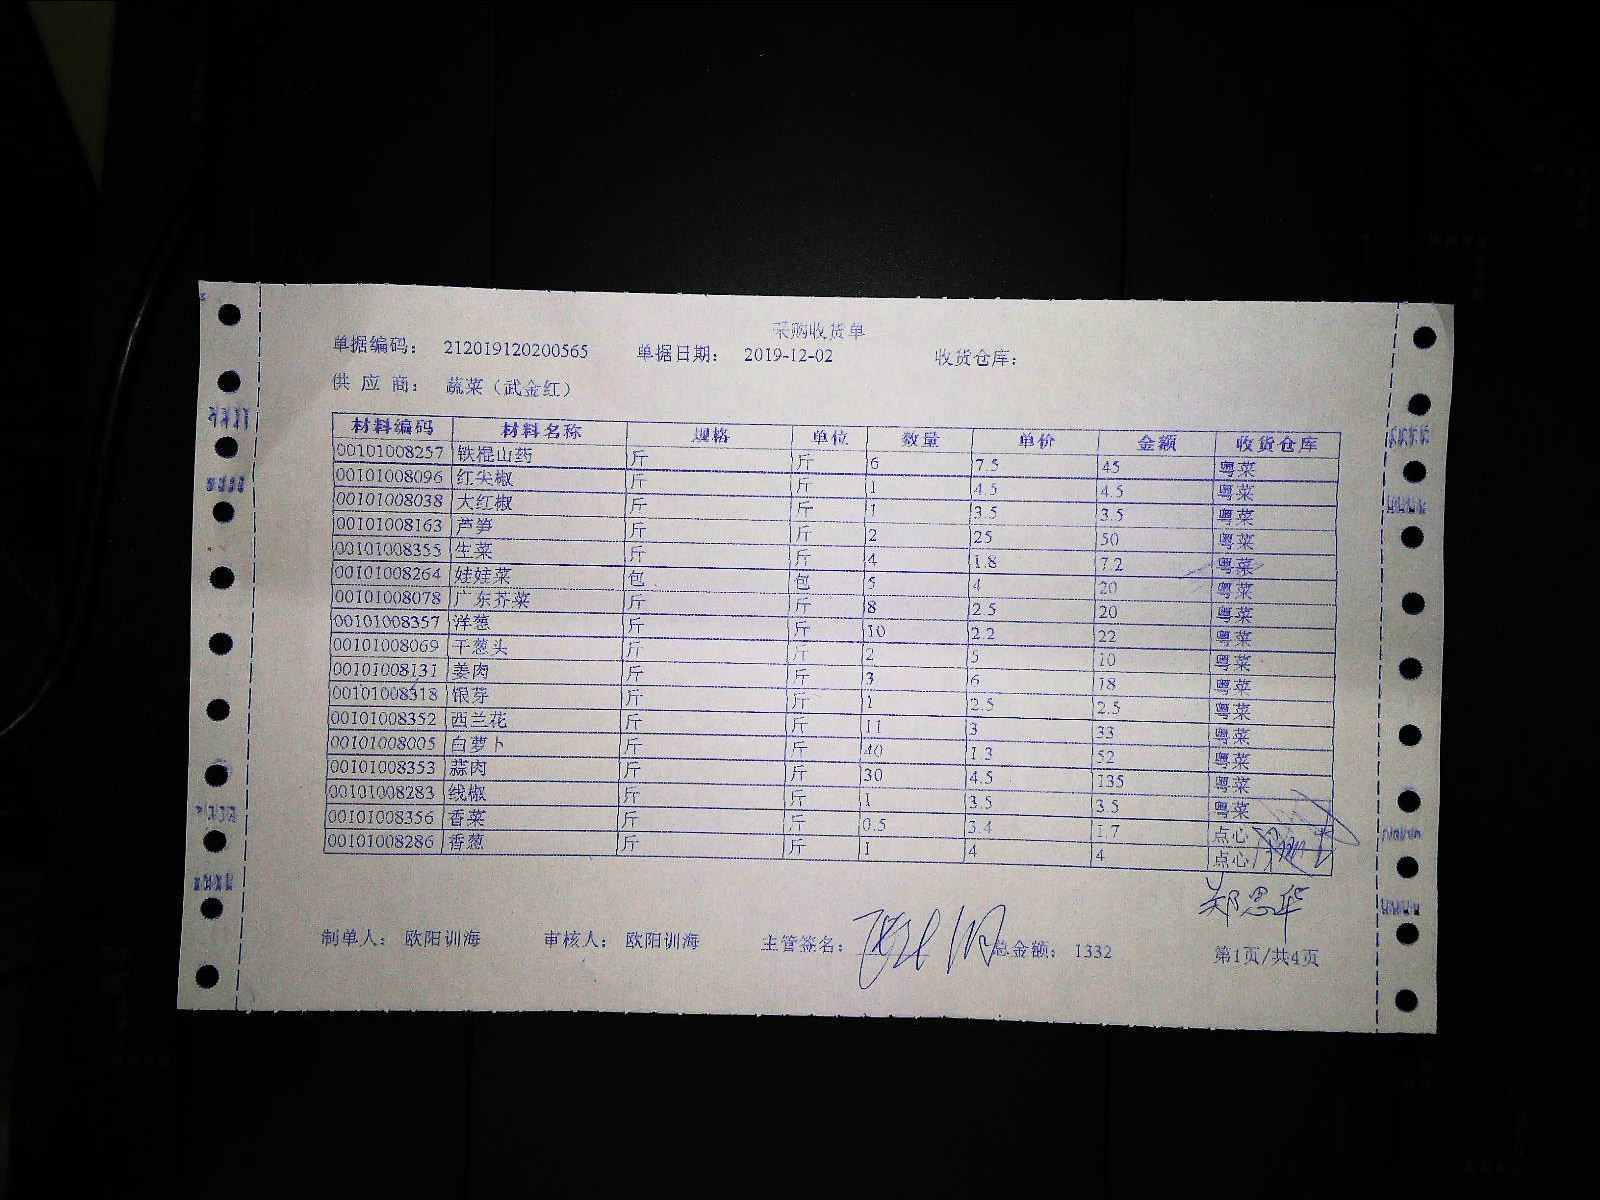 采购收货单
单据编码： 212019120200565 单据日期： 2019-12-02 收货仓库：
供 应 商： 蔬菜（武金红）
材料编码 材料名称 规格 单位 数量 单价 金额 收货仓库
00101008257 铁棍山药 斤 斤 6 7.5 45 粤菜
00101008096 红尖椒 斤 斤 1 4.5 4.5 粤菜
00101008038 大红椒 斤 斤 1 3.5 3.5 粤菜
00101008163 芦笋 斤 斤 2 25 50 粤菜
00101008355 生菜 斤 斤 4 1.8 7.2 粤菜
00101008264 娃娃菜 包 包 5 4 20 粤菜
00101008078 广东芥菜 斤 斤 8 2.5 20 粤菜
00101008357 洋葱 斤 斤 10 2.2 22 粤菜
00101008069 干葱头 斤 斤 2 5 10 粤菜
00101008131 姜肉 斤 斤 3 6 18 粤菜
00101008318 银芽 斤 斤 1 2.5 2.5 粤菜
00101008352 西兰花 斤 斤 11 3 33 粤菜
00101008005 白萝卜 斤 斤 40 1.3 52 粤菜
00101008353 蒜肉 斤 斤 30 4.5 135 粤菜
00101008283 线椒 斤 斤 1 3.5 3.5 粤菜
00101008356 香菜 斤 斤 0.5 3.4 1.7 点心
00101008286 香葱 斤 斤 1 4 4 点心
郑思华
制单人： 欧阳训海 审核人： 欧阳训海 主管签名： 总金额： 1332 第1页/共4页